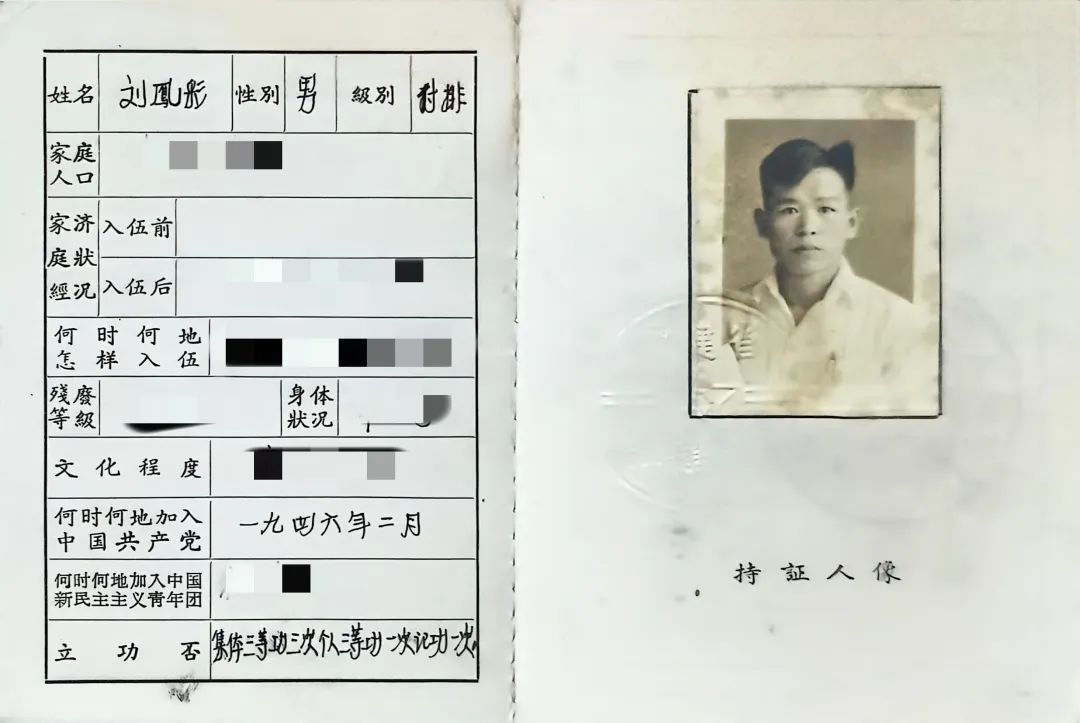 姓名 刘鳳彤 性別 男 級別 付排
家庭
人口
家济 入伍前
庭狀
經況 入伍后
何时何地
怎样入伍
殘廢 身体
等級 狀況
文化程度
何时何地加入 一九四六年二月
中国共产党
何时何地加入中国
新民主主义青年团
立功否 集体三等功三次个人三等功一次记功一次
持証人像